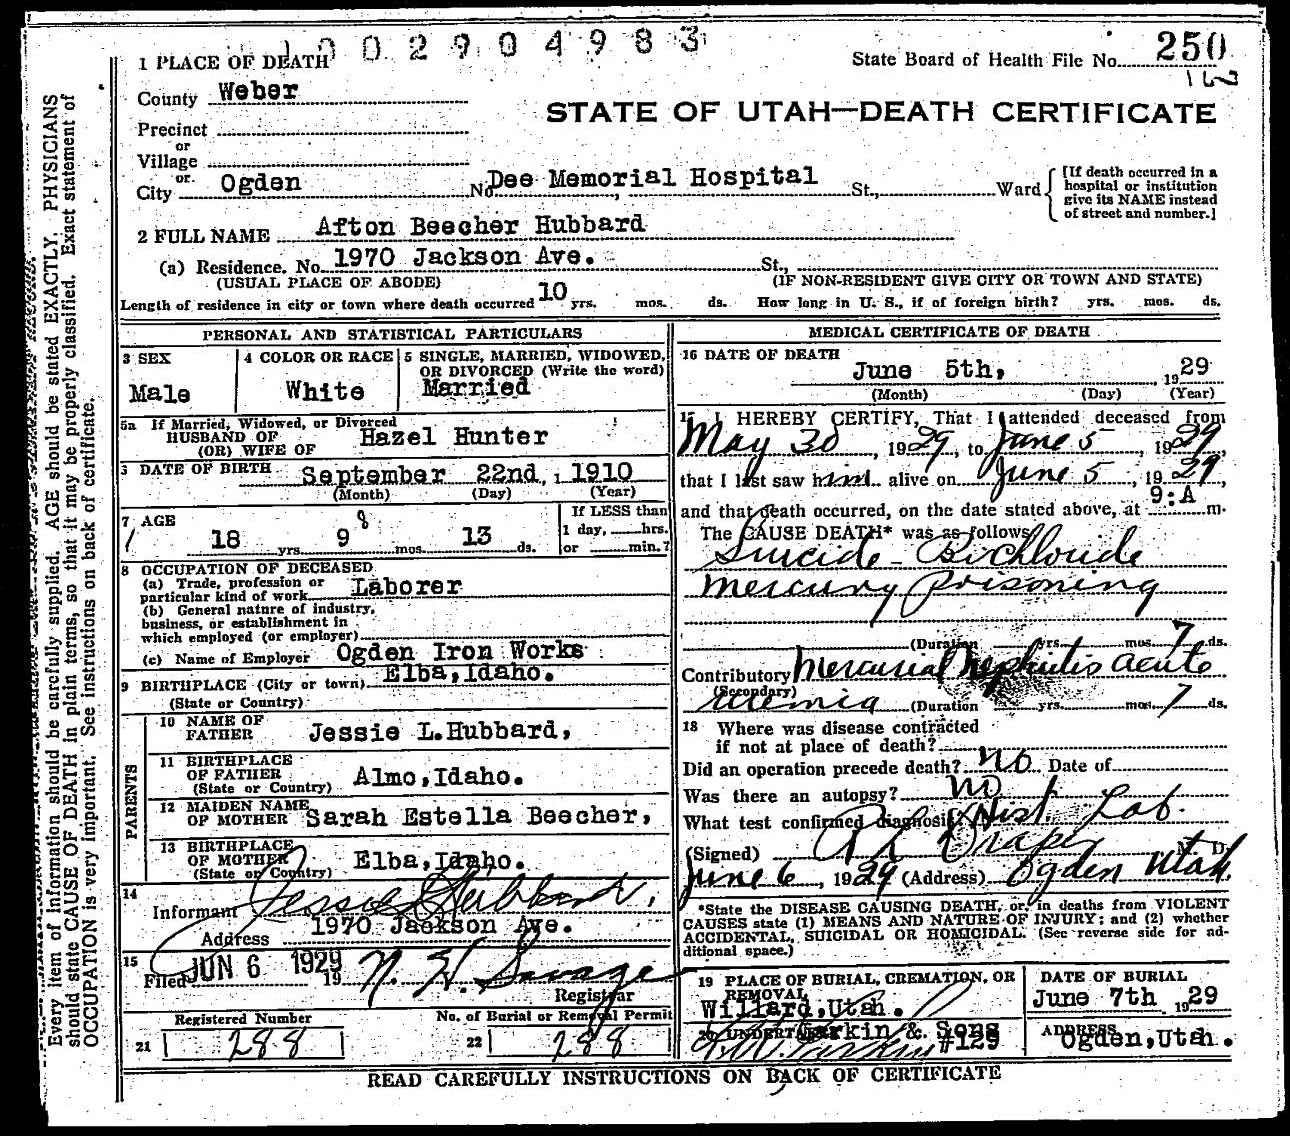 1002904983
1 PLACE OF DEATH
State Board of Health File No. 250
County Weber
STATE OF UTAH—DEATH CERTIFICATE
Precinct
or
Village
or
City Ogden No. Dee Memorial Hospital St., Ward
[If death occurred in a
hospital or institution
give its NAME instead
of street and number.]
2 FULL NAME Afton Beecher Hubbard
(a) Residence. No. 1970 Jackson Ave. St.,
(USUAL PLACE OF ABODE) (IF NON-RESIDENT GIVE CITY OR TOWN AND STATE)
Length of residence in city or town where death occurred 10 yrs. mos. ds. How long in U. S., if of foreign birth? yrs. mos. ds.
Every item of information should be carefully supplied. AGE should be stated EXACTLY. PHYSICIANS
should state CAUSE OF DEATH in plain terms, so that it may be properly classified. Exact statement of
OCCUPATION is very important. See instructions on back of certificate.
PERSONAL AND STATISTICAL PARTICULARS
3 SEX
Male
4 COLOR OR RACE
White
5 SINGLE, MARRIED, WIDOWED,
OR DIVORCED (Write the word)
Married
5a If Married, Widowed, or Divorced
HUSBAND OF
(OR) WIFE OF Hazel Hunter
DATE OF BIRTH September 22nd, 1 1910
(Month) (Day) (Year)
7 AGE
18 yrs. 9 8 mos. 13 ds.
If LESS than
1 day, hrs.
or min.?
8 OCCUPATION OF DECEASED
(a) Trade, profession or
particular kind of work Laborer
(b) General nature of industry,
business, or establishment in
which employed (or employer)
(c) Name of Employer Ogden Iron Works
9 BIRTHPLACE (City or town) Elba, Idaho.
(State or Country)
PARENTS
10 NAME OF
FATHER Jessie L. Hubbard,
11 BIRTHPLACE
OF FATHER
(State or Country) Almo, Idaho.
12 MAIDEN NAME
OF MOTHER Sarah Estella Beecher,
13 BIRTHPLACE
OF MOTHER
(State or Country) Elba, Idaho.
14
Informant Jessie L Hubbard,
Address 1970 Jackson Ave.
15
Filed JUN 6 1929 19 N. H. Savage
Registrar
Registered Number
21 288
No. of Burial or Removal Permit
22 288
MEDICAL CERTIFICATE OF DEATH
16 DATE OF DEATH
June 5th, 1929
(Month) (Day) (Year)
17 I HEREBY CERTIFY, That I attended deceased from
May 30, 1929, to June 5, 1929,
that I last saw him alive on June 5, 1929,
and that death occurred, on the date stated above, at 9:A m.
The CAUSE DEATH* was as follows
Suicide - Bichloride
Mercury Poisoning
(Duration yrs. mos. 7 ds.
Contributory Mercurial Nephritis acute
(Secondary)
uremia (Duration yrs. mos. 7 ds.
18 Where was disease contracted
if not at place of death?
Did an operation precede death? no Date of
Was there an autopsy? no
What test confirmed diagnosis? Hist Lab.
(Signed) Draper M. D.
June 6, 1929 (Address) Ogden Utah.
*State the DISEASE CAUSING DEATH, or, in deaths from VIOLENT
CAUSES state (1) MEANS AND NATURE OF INJURY; and (2) whether
ACCIDENTAL, SUICIDAL OR HOMICIDAL. (See reverse side for ad-
ditional space.)
19 PLACE OF BURIAL, CREMATION, OR
REMOVAL
Willard, Utah.
DATE OF BURIAL
June 7th 1929
20 UNDERTAKER Larkin & Sons
#129
ADDRESS
Ogden, Utah.
READ CAREFULLY INSTRUCTIONS ON BACK OF CERTIFICATE